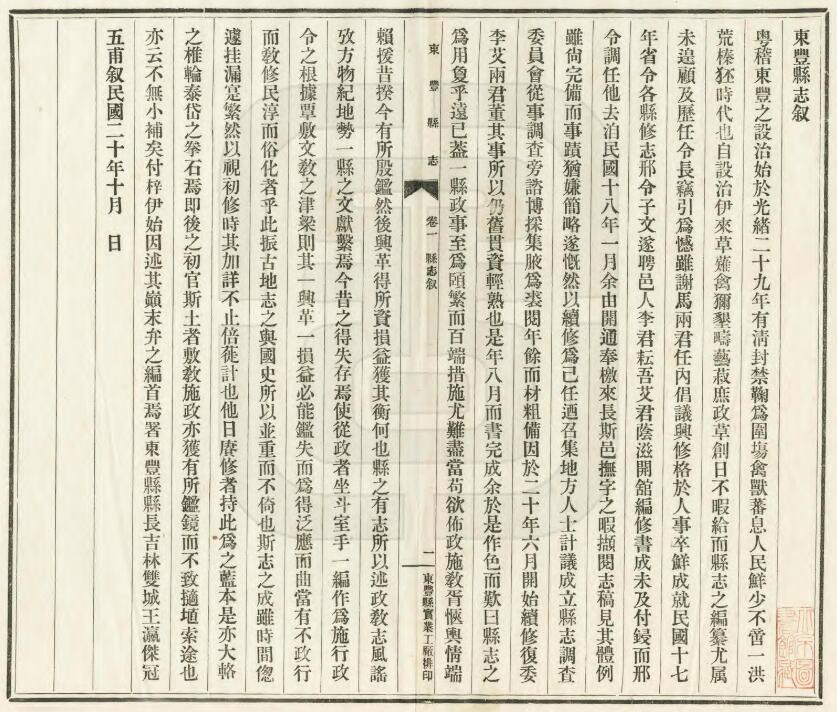 東豐縣志叙
粤稽東豐之設治始於光緒二十九年有淸封禁鞠爲圍塲禽獸蕃息人民鮮少不啻一洪
荒榛狉時代也自設治伊來草薙禽獮墾疇藝菽庶政草創日不暇給而縣志之編纂尤屬
未遑顧及歷任令長竊引爲憾雖謝馬兩君任內倡議興修格於人事卒鮮成就民國十七
年省令各縣修志邢令子文遂聘邑人李君耘吾艾君蔭滋開舘編修書成未及付鋟而邢
令調任他去洎民國十八年一月余由開通奉檄來長斯邑撫字之暇擷閱志稿見其體例
雖尙完備而事蹟猶嫌簡略遂慨然以續修爲己任迺召集地方人士計議成立縣志調査
委員會從事調査旁諮博採集腋爲裘閱年餘而材粗備因於二十年六月開始續修復委
李艾兩君董其事所以仍舊貫資輕熟也是年八月而書完成余於是作色而歎曰縣志之
爲用敻乎遠已葢一縣政事至爲頤繁而百端措施尤難盡當苟欲佈政施敎胥愜輿情端
東豐縣志
卷一 縣志叙
一
東豐縣實業工廠排印
賴援昔揆今有所殷鑑然後興革得所資損益獲其衡何也縣之有志所以述政敎志風謠
攷方物紀地勢一縣之文獻繫焉今昔之得失存焉使從政者坐斗室手一編作爲施行政
令之根據覃敷文敎之津梁則其一興革一損益必能鑑失而爲得泛應而曲當有不政行
而敎修民淳而俗化者乎此振古地志之與國史所以並重而不倚也斯志之成雖時間偬
遽挂漏寔繁然以視初修時其加詳不止倍蓰計也他日賡修者持此爲之藍本是亦大輅
之椎輪泰岱之拳石焉即後之初官斯土者敷敎施政亦獲有所鑑鏡而不致擿埴索途也
亦云不無小補矣付梓伊始因述其巔末弁之編首焉署東豐縣縣長吉林雙城王瀛傑冠
五甫叙民國二十年十月　日